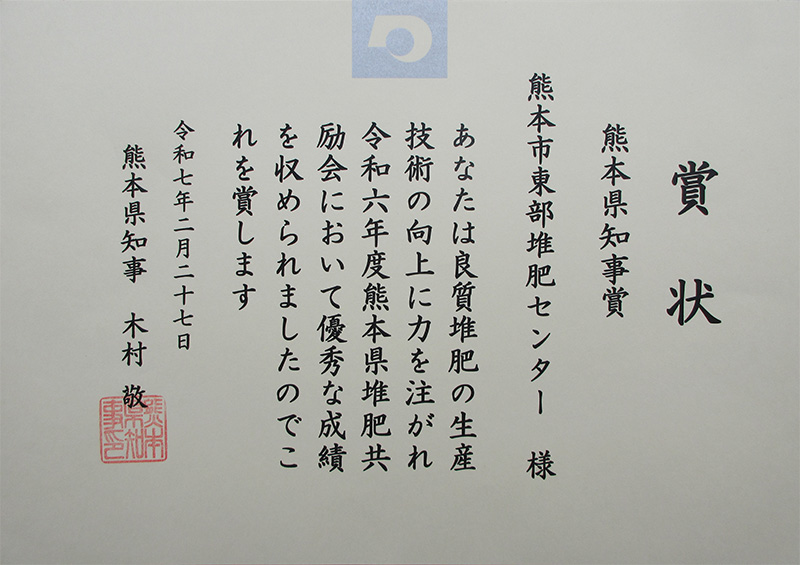 賞状
熊本県知事賞
熊本市東部堆肥センター 様
あなたは良質堆肥の生産
技術の向上に力を注がれ
令和六年度熊本県堆肥共
励会において優秀な成績
を収められましたのでこ
れを賞します
令和七年二月二十七日
熊本県知事 木村 敬
熊本
県知
事印